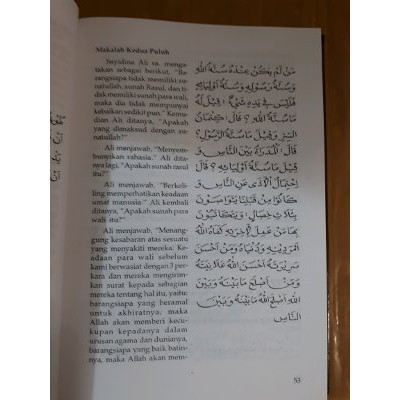 Makalah Kedua Puluh
Sayidina Ali ra. menga-
takan sebagai berikut. "Ba-
rangsiapa tidak memiliki su-
natullah, sunah Rasul, dan ti-
dak memiliki sunah para wali,
maka dia tidak mempunyai
kebaikan sedikit pun." Kemu-
dian Ali ditanya, "Apakah
yang dimaksud dengan su-
natullah?"
Ali menjawab, "Menyem-
bunyikan rahasia." Ali dita-
nya lagi, "Apakah sunah rasul
itu?"
Ali menjawab, "Berkeli-
ling memperhatikan keadaan
umat manusia." Ali kembali
ditanya, "Apakah sunah para
wali itu?"
Ali menjawab, "Menang-
gung kesabaran atas sesuatu
yang menyakiti mereka. Ke-
adaan para wali sebelum
kami berwasiat dengan 3 per-
kara dan mereka mengirim-
kan surat kepada sebagian
mereka tentang hal itu, yaitu:
barangsiapa yang beramal
untuk akhiratnya, maka
Allah akan memberi kecu-
kupan kepadanya dalam
urusan agama dan dunianya,
barangsiapa yang baik batin-
nya, maka Allah akan mem-
مَنْ لَمْ يَكُنْ عِنْدَهُ سُنَّةُ اللهِ
وَسُنَّةُ رَسُوْلِهِ وَسُنَّةُ أَوْلِيَائِهِ
فَلَيْسَ فِيْ يَدِهِ شَيْءٌ؛ قِيْلَ لَهُ
مَا سُنَّةُ اللهِ؟ قَالَ: كِتْمَانُ
السِّرِّ وَقِيْلَ مَا سُنَّةُ الرَّسُوْلِ؟
قَالَ: الْمُدَارَاةُ بَيْنَ النَّاسِ وَ
قِيْلَ مَا سُنَّةُ أَوْلِيَائِهِ؟ قَالَ:
اِحْتِمَالُ الْأَذَى عَنِ النَّاسِ وَ
كَانُوْا مِنْ قَبْلِنَا يَتَوَاصَوْنَ
بِثَلَاثِ خِصَالٍ: وَيَتَكَاتَبُوْنَ
بِهَا مَنْ عَمِلَ لِآخِرَتِهِ كَفَاهُ اللهُ
أَمْرَ دِيْنِهِ وَدُنْيَاهُ وَمَنْ أَحْسَنَ
سَرِيْرَتَهُ أَحْسَنَ اللهُ عَلَانِيَتَهُ
وَمَنْ أَصْلَحَ مَا بَيْنَهُ وَبَيْنَ
اللهِ أَصْلَحَ اللهُ مَا بَيْنَهُ وَبَيْنَ
النَّاسِ
53